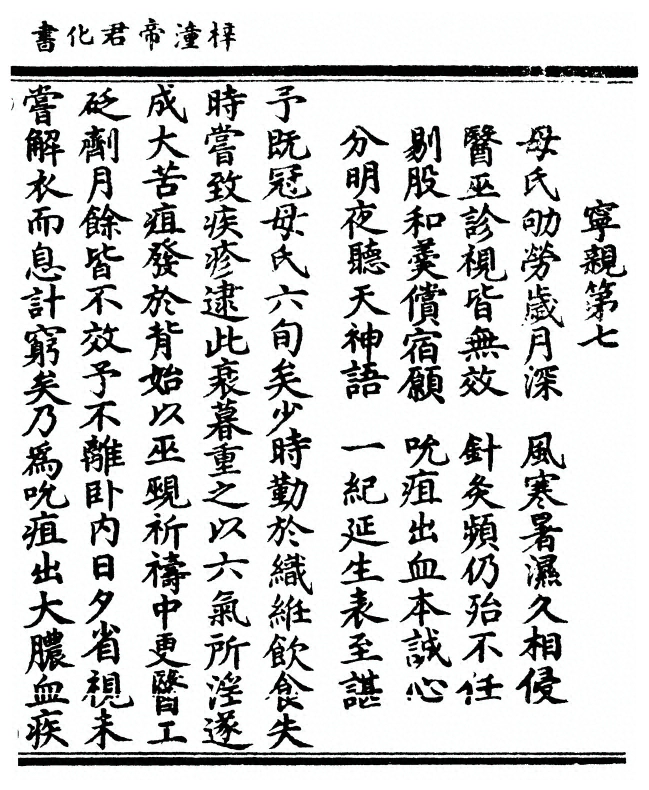 梓潼帝君化書
寧親第七
母氏劬勞歲月深　風寒暑濕久相侵
醫巫診視皆無效　針灸頻仍殆不任
剔股和羮償宿願　吮疽出血本誠心
分明夜聽天神語　一紀延生表至諶
予既冠母氏六旬矣少時勤於織維飲食失
時嘗致疾疹逮此衰暮重之以六氣所淫遂
成大苦疽發於背始以巫覡祈禱中更醫工
砭劑月餘皆不效予不離卧内日夕省視未
嘗解衣而息計窮矣乃爲吮疽出大膿血疾